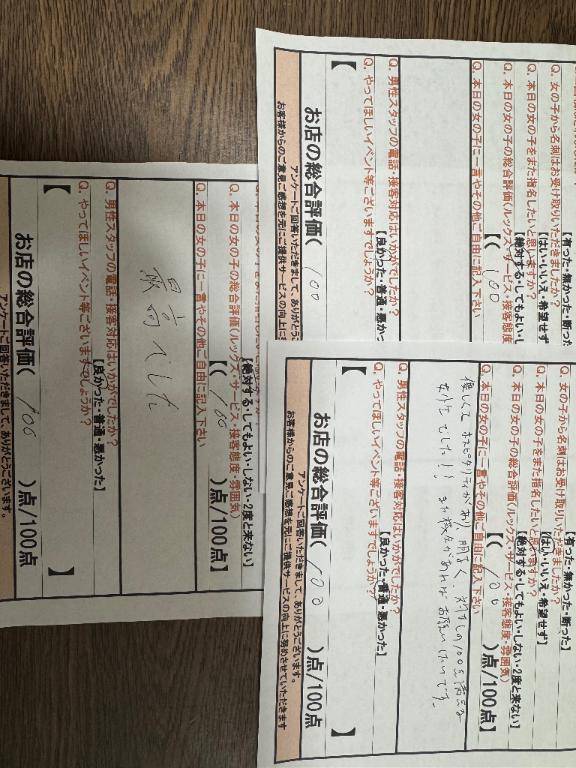 Q. 女の子から名刺はお受け取りいただきましたか?
【有った・無かった・断った】
Q. 本日の女の子をまた指名したいと思いますか?
【はい・いいえ・希望せず】
【絶対する・してもよい・しない・2度と来ない】
Q. 本日の女の子の総合評価(ルックス・サービス・接客態度・雰囲気)
【( 100 )点/100点】
Q. 本日の女の子に一言やその他ご自由に記入下さい
優しくて ホスピタリティがあり 明るく、
文句なしの100点満点な
女性でした!! また機会があればお願いしたいです。
Q. 男性スタッフの電話・接客対応はいかがでしたか?
【良かった・普通・悪かった】
Q. やってほしいイベント等ございますでしょうか?
【 】
お店の総合評価( 100 )点/100点
アンケートご回答いただきまして、ありがとうございます。
お客様からのご意見ご感想を元にご提供サービスの向上に努めさせていただきます
Q. 女の子から名刺はお受け取りいただきましたか?
【有った・無かった・断った
Q. 本日の女の子をまた指名したいと思いますか?
【はい・いいえ・希望せず
【絶対する・してもよい・し
Q. 本日の女の子の総合評価(ルックス・サービス・接客態度
【( 100
Q. 本日の女の子に一言やその他ご自由に記入下さい
Q. 男性スタッフの電話・接客対応はいかがでしたか?
【良かった・普通・悪かっ
Q. やってほしいイベント等ございますでしょうか?
【
お店の総合評価( 100
アンケートご回答いただきまして、ありがとう
お客様からのご意見ご感想を元にご提供サービスの向上に
【絶対する・してもよい・しない・2度と来ない】
Q. 本日の女の子の総合評価(ルックス・サービス・接客態度・雰囲気)
【( 100 )点/100点】
Q. 本日の女の子に一言やその他ご自由に記入下さい
最高でした
Q. 男性スタッフの電話・接客対応はいかがでしたか?
【良かった・普通・悪かった】
Q. やってほしいイベント等ございますでしょうか?
【 】
お店の総合評価( 100 )点/100点
アンケートご回答いただきまして、ありがとうございます。